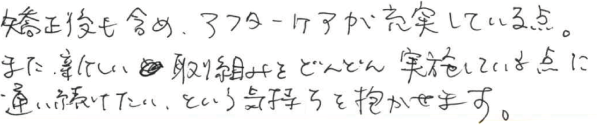 矯正後も含め、アフターケアが充実している点。
また、新しい取り組みをどんどん実施している点に
通い続けたい、という気持ちを抱かせます。